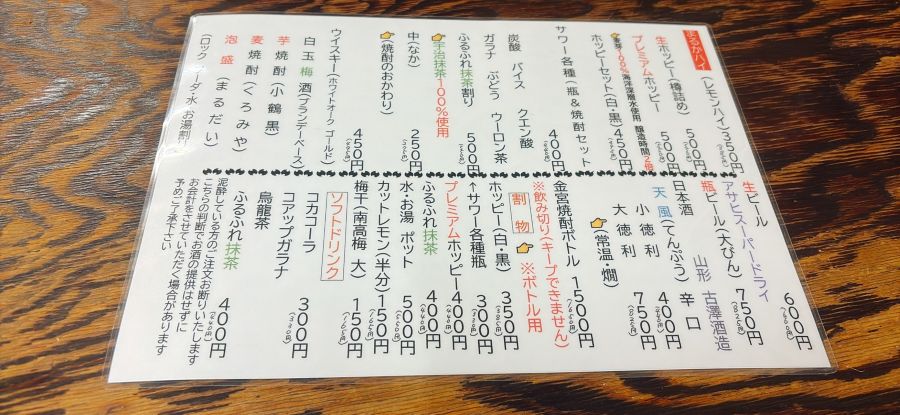 まるかハイ (レモンハイ) 350円 (385円)
生ホッピー (樽詰め) 500円
プレミアムホッピー 500円
麦芽100%海洋深層水使用 醸造時間2倍
ホッピーセット (白・黒) 450円
サワー各種 (瓶&焼酎セット 400円
炭酸 バイス クエン酸
ガラナ ぶどう ウーロン茶
ふるふれ抹茶割り 500円
👉宇治抹茶100%使用
中 (なか) 250円
👉(焼酎のおかわり)
ウイスキー (ホワイトオーク ゴールド) 450円
白玉梅酒 (ブランデーベース)
芋焼酎 (小鶴黒)
麦焼酎 (くろみや)
泡盛 (まるだい)
生ビール 600円
アサヒスーパードライ
瓶ビール (大びん) 750円 (825円)
日本酒 山形 古澤酒造
天風 (てんぷう) 辛口
小徳利 400円
大徳利 750円 (825円)
👉(常温・燗)
金宮焼酎ボトル 1500円
※飲み切り(キープできません)
割物 👉※ボトル用
ホッピー (白・黒) 350円 (385円)
↑サワー各種瓶 300円 (330円)
プレミアムホッピー 400円 (440円)
ふるふれ抹茶 400円 (440円)
水 お湯 ポット 500円 (550円)
カットレモン (半分) 150円 (165円)
梅干 (南高梅 大) 150円 (165円)
ソフトドリンク
コカコーラ
コアップガラナ 300円 (330円)
烏龍茶
ふるふれ抹茶 400円 (440円)
泥酔している方のご注文お断りいたします
こちらの判断でお酒の提供はせずに
お会計をさせていただく場合があります
予めご了承下さい